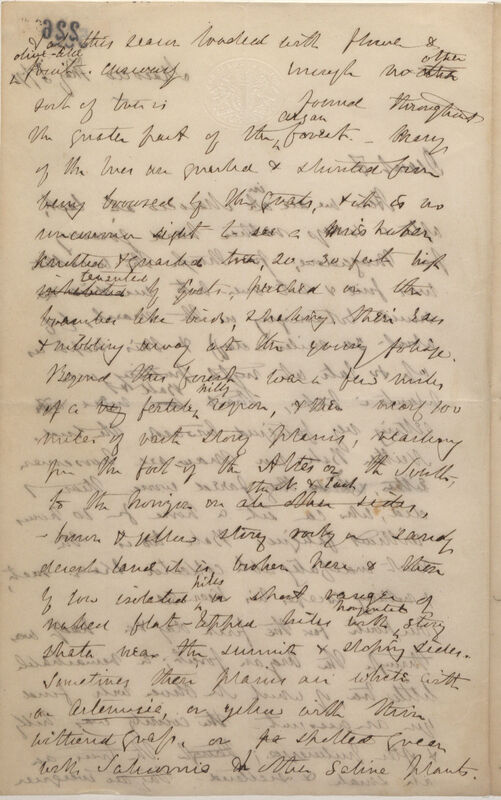 226
at this season loaded with flower &
olive-like
fruit. curiously enough no other other
sort of tree is found throughout
argan
the greater part of the forest. – Many
of the trees are gnarled & stunted from
being browsed by the goats, & it is no
uncommon sight to see a misshapen
knotted & gnarled tree, 20–30 feet high
tenanted
inhabited by goats, perched on the
branches like birds, shaking their ears
& nibbling away at the young foliage.
Beyond this forest was a few miles
hilly
of a very fertile region, & then nearly 100
miles of vast stony plains, reaching
from the foot of the Atlas on the South,
the N. &
to the horizon on all other sides,
– brown & yellow stony rocky or sandy
desert land it is broken here & there
hills
by low isolated or short ranges of
horizontal
naked flat-topped hills with stony
strata near the summit & sloping sides.
Sometimes these plains are white with
an artemisia, or yellow with thin
withered grass, or patched green
with Salicornia & other Saline plants.